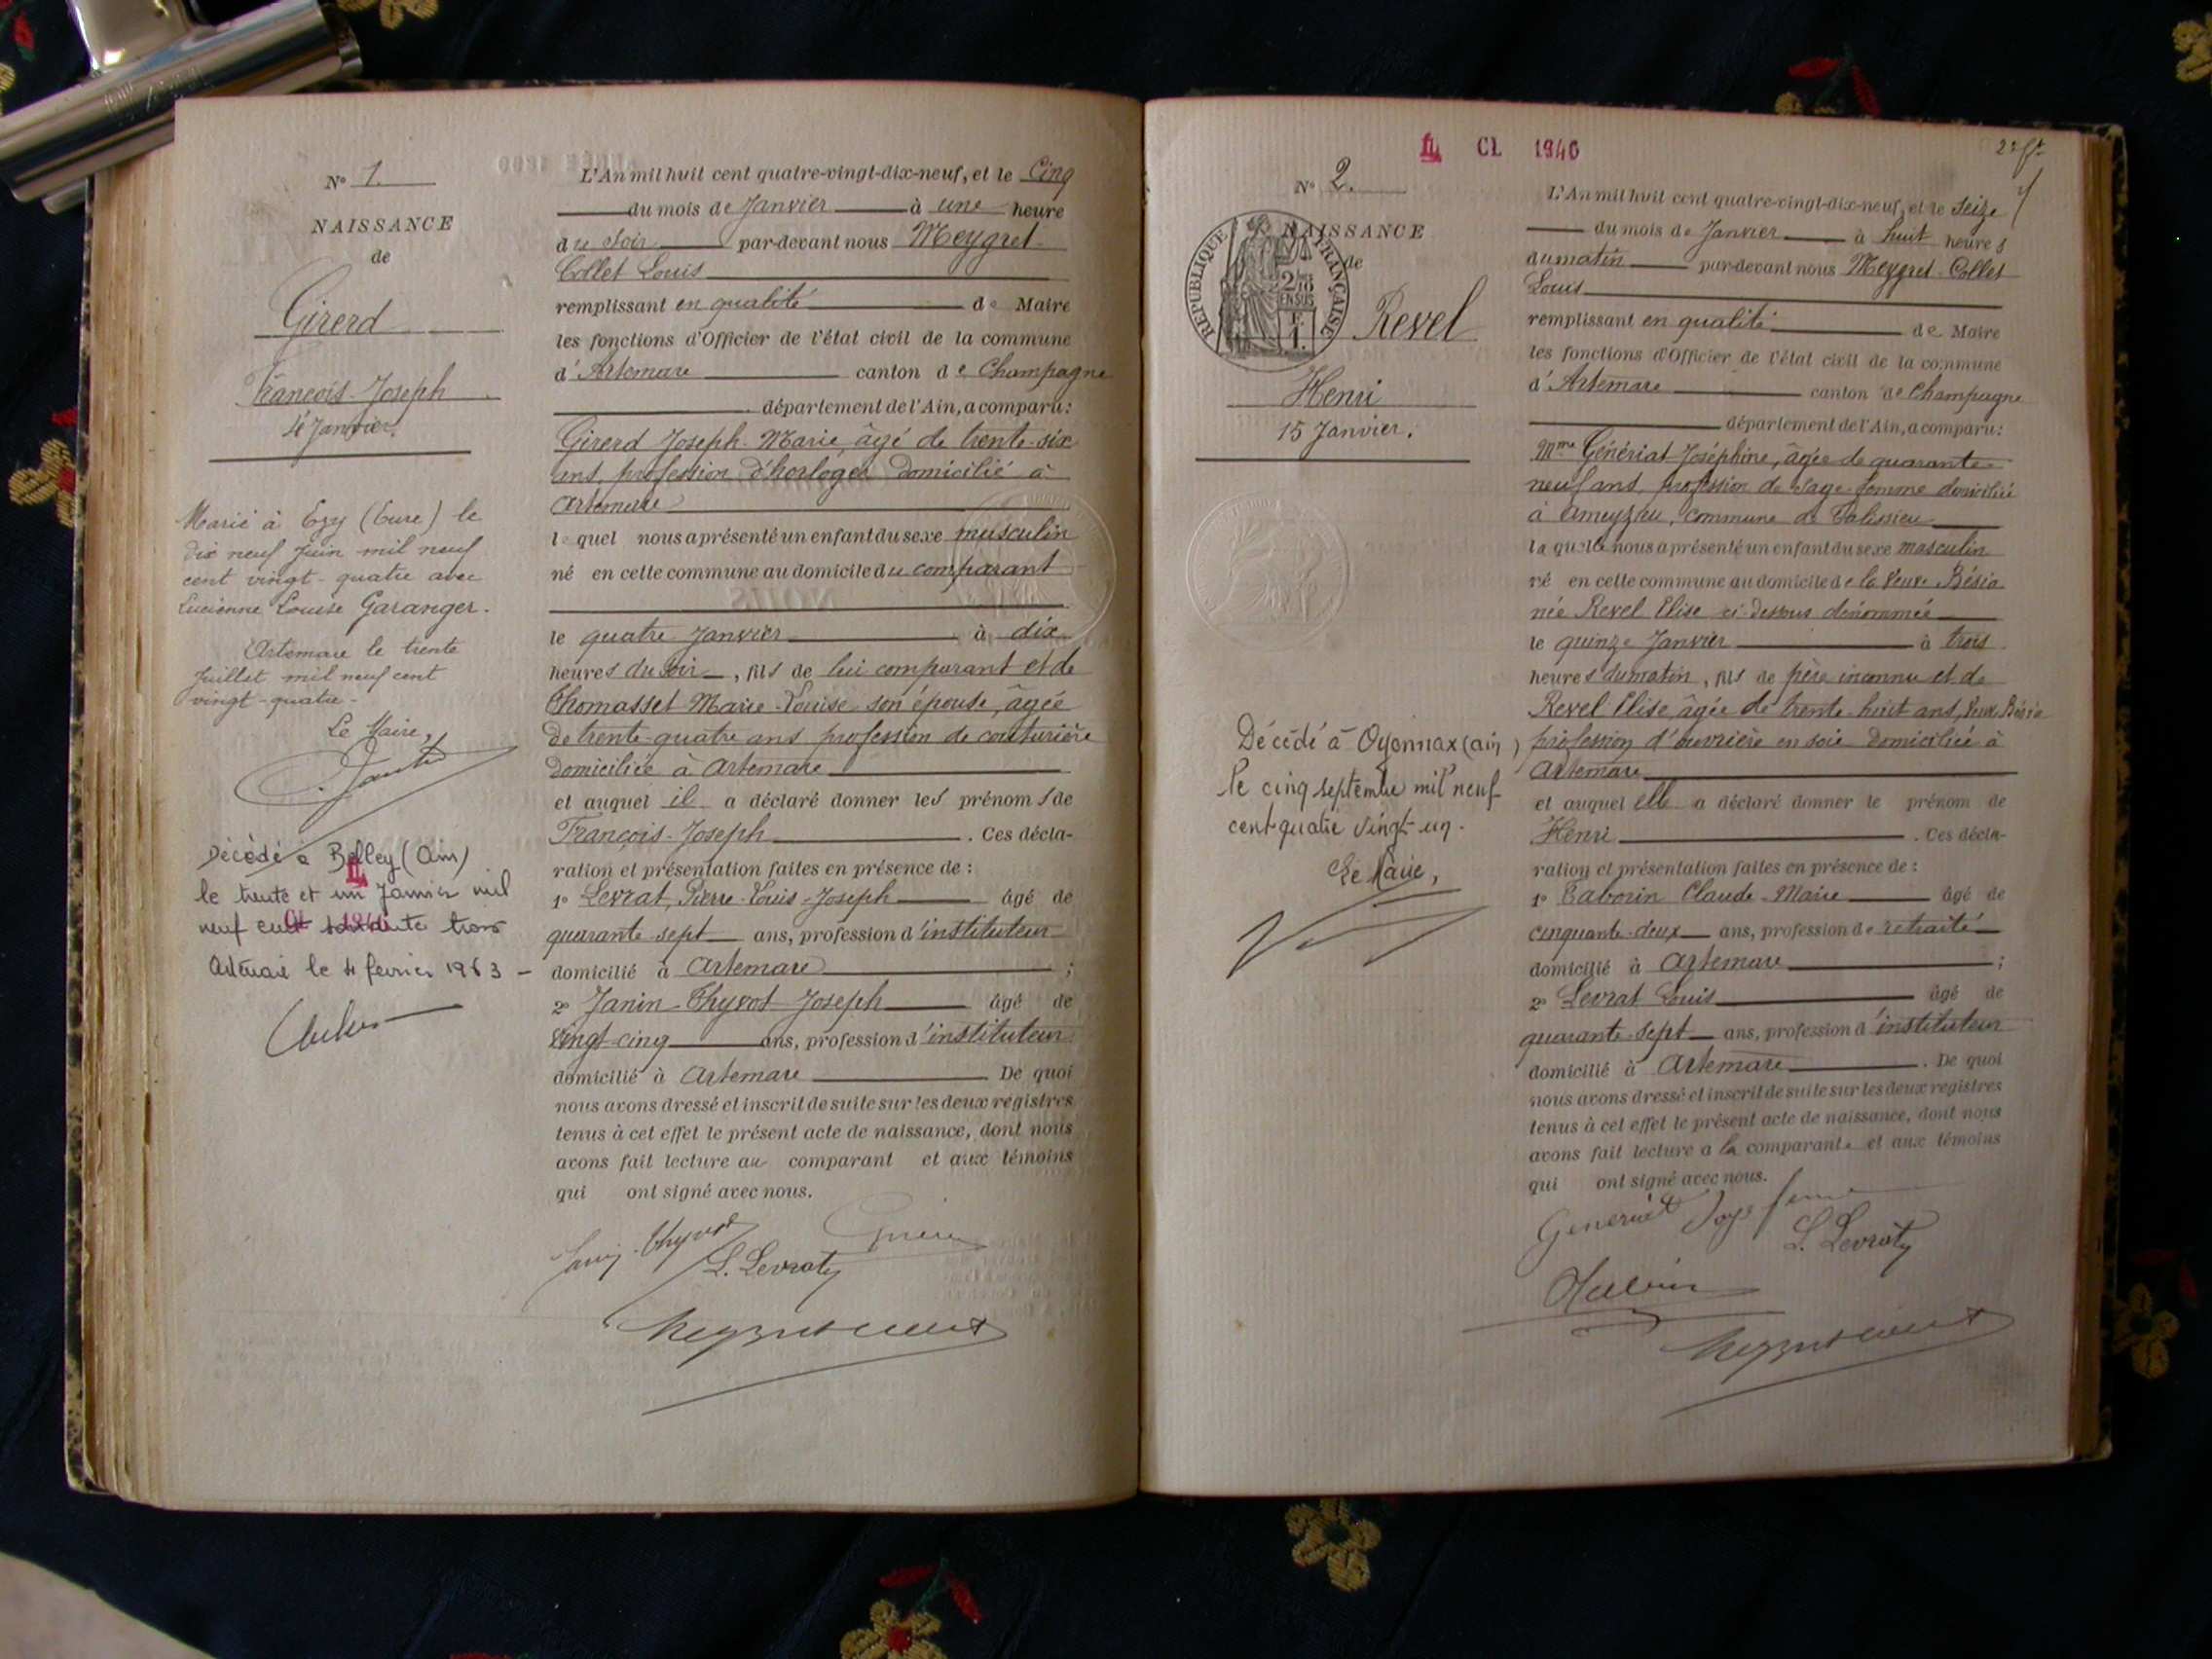 N° 1.
NAISSANCE
de
Girerd
François-Joseph
4 Janvier.
Marié à Ezy (Eure) le
dix neuf Juin mil neuf
cent vingt-quatre avec
Lucienne Louise Garanger.
Artemare le trente
Juillet mil neuf cent
vingt-quatre-
Le Maire,
Décédé à Belley (Ain)
le trente et un Janvier mil
neuf cent soixante trois
Artemare le 4 fevrier 1963 -
L'An mil huit cent quatre-vingt-dix-neuf, et le Cinq
du mois de Janvier à une heure
du soir par-devant nous Meygret-
Collet Louis
remplissant en qualité de Maire
les fonctions d'Officier de l'état civil de la commune
d'Artemare canton de Champagne
département de l'Ain, a comparu:
Girerd Joseph-Marie, âgé de trente-six
ans, profession d'horloger domicilié à
Artemare
lequel nous a présenté un enfant du sexe masculin
né en cette commune au domicile du comparant
le quatre Janvier à dix
heures du soir, fils de lui comparant et de
Thomasset Marie-Louise son épouse, âgée
de trente-quatre ans profession de couturière
domiciliée à Artemare
et auquel il a déclaré donner les prénoms de
François-Joseph. Ces décla-
ration et présentation faites en présence de:
1° Levrat, Pierre-Louis-Joseph âgé de
quarante sept ans, profession d'instituteur
domicilié à Artemare;
2° Janin-Thyvot Joseph âgé de
vingt-cinq ans, profession d'instituteur
domicilié à Artemare De quoi
nous avons dressé et inscrit de suite sur les deux registres
tenus à cet effet le présent acte de naissance, dont nous
avons fait lecture au comparant et aux témoins
qui ont signé avec nous.
Janin-Thyvot
L. Levrat
Meygret Collet
fL CL 1946
2e ft
N° 2.
NAISSANCE
de
REPUBLIQUE FRANÇAISE
2/10
EN SUS
Revel
Henri
15 Janvier.
Décédé à Oyonnax (ain)
le cinq septembre mil neuf
cent quatre vingt-un.
Le Maire,
L'An mil huit cent quatre-vingt-dix-neuf, et le seize
du mois de Janvier à huit heures
du matin par-devant nous Meygret-Collet
Louis
remplissant en qualité de Maire
les fonctions d'Officier de l'état civil de la commune
d'Artemare canton de Champagne
département de l'Ain, a comparu:
Mme Génériat Joséphine, âgée de quarante-
neuf ans, profession de sage-femme domiciliée
à Ameyzieu, commune de Talissieu
laquelle nous a présenté un enfant du sexe masculin
né en cette commune au domicile de la veuve Bésia
née Revel Elise ci-dessous dénommée
le quinze Janvier à trois
heures du matin, fils de père inconnu et de
Revel Elise, âgée de trente-huit ans, veuve Bésia
profession d'ouvrière en soie domiciliée à
Artemare
et auquel elle a déclaré donner le prénom de
Henri. Ces décla-
ration et présentation faites en présence de:
1° Taborin Claude-Marie âgé de
cinquante-deux ans, profession de retraité
domicilié à Artemare;
2° Levrat Louis âgé de
quarante-sept ans, profession d'instituteur
domicilié à Artemare. De quoi
nous avons dressé et inscrit de suite sur les deux registres
tenus à cet effet le présent acte de naissance, dont nous
avons fait lecture à la comparante et aux témoins
qui ont signé avec nous.
Génériat Sage femme
L. Levrat
Meygret Collet